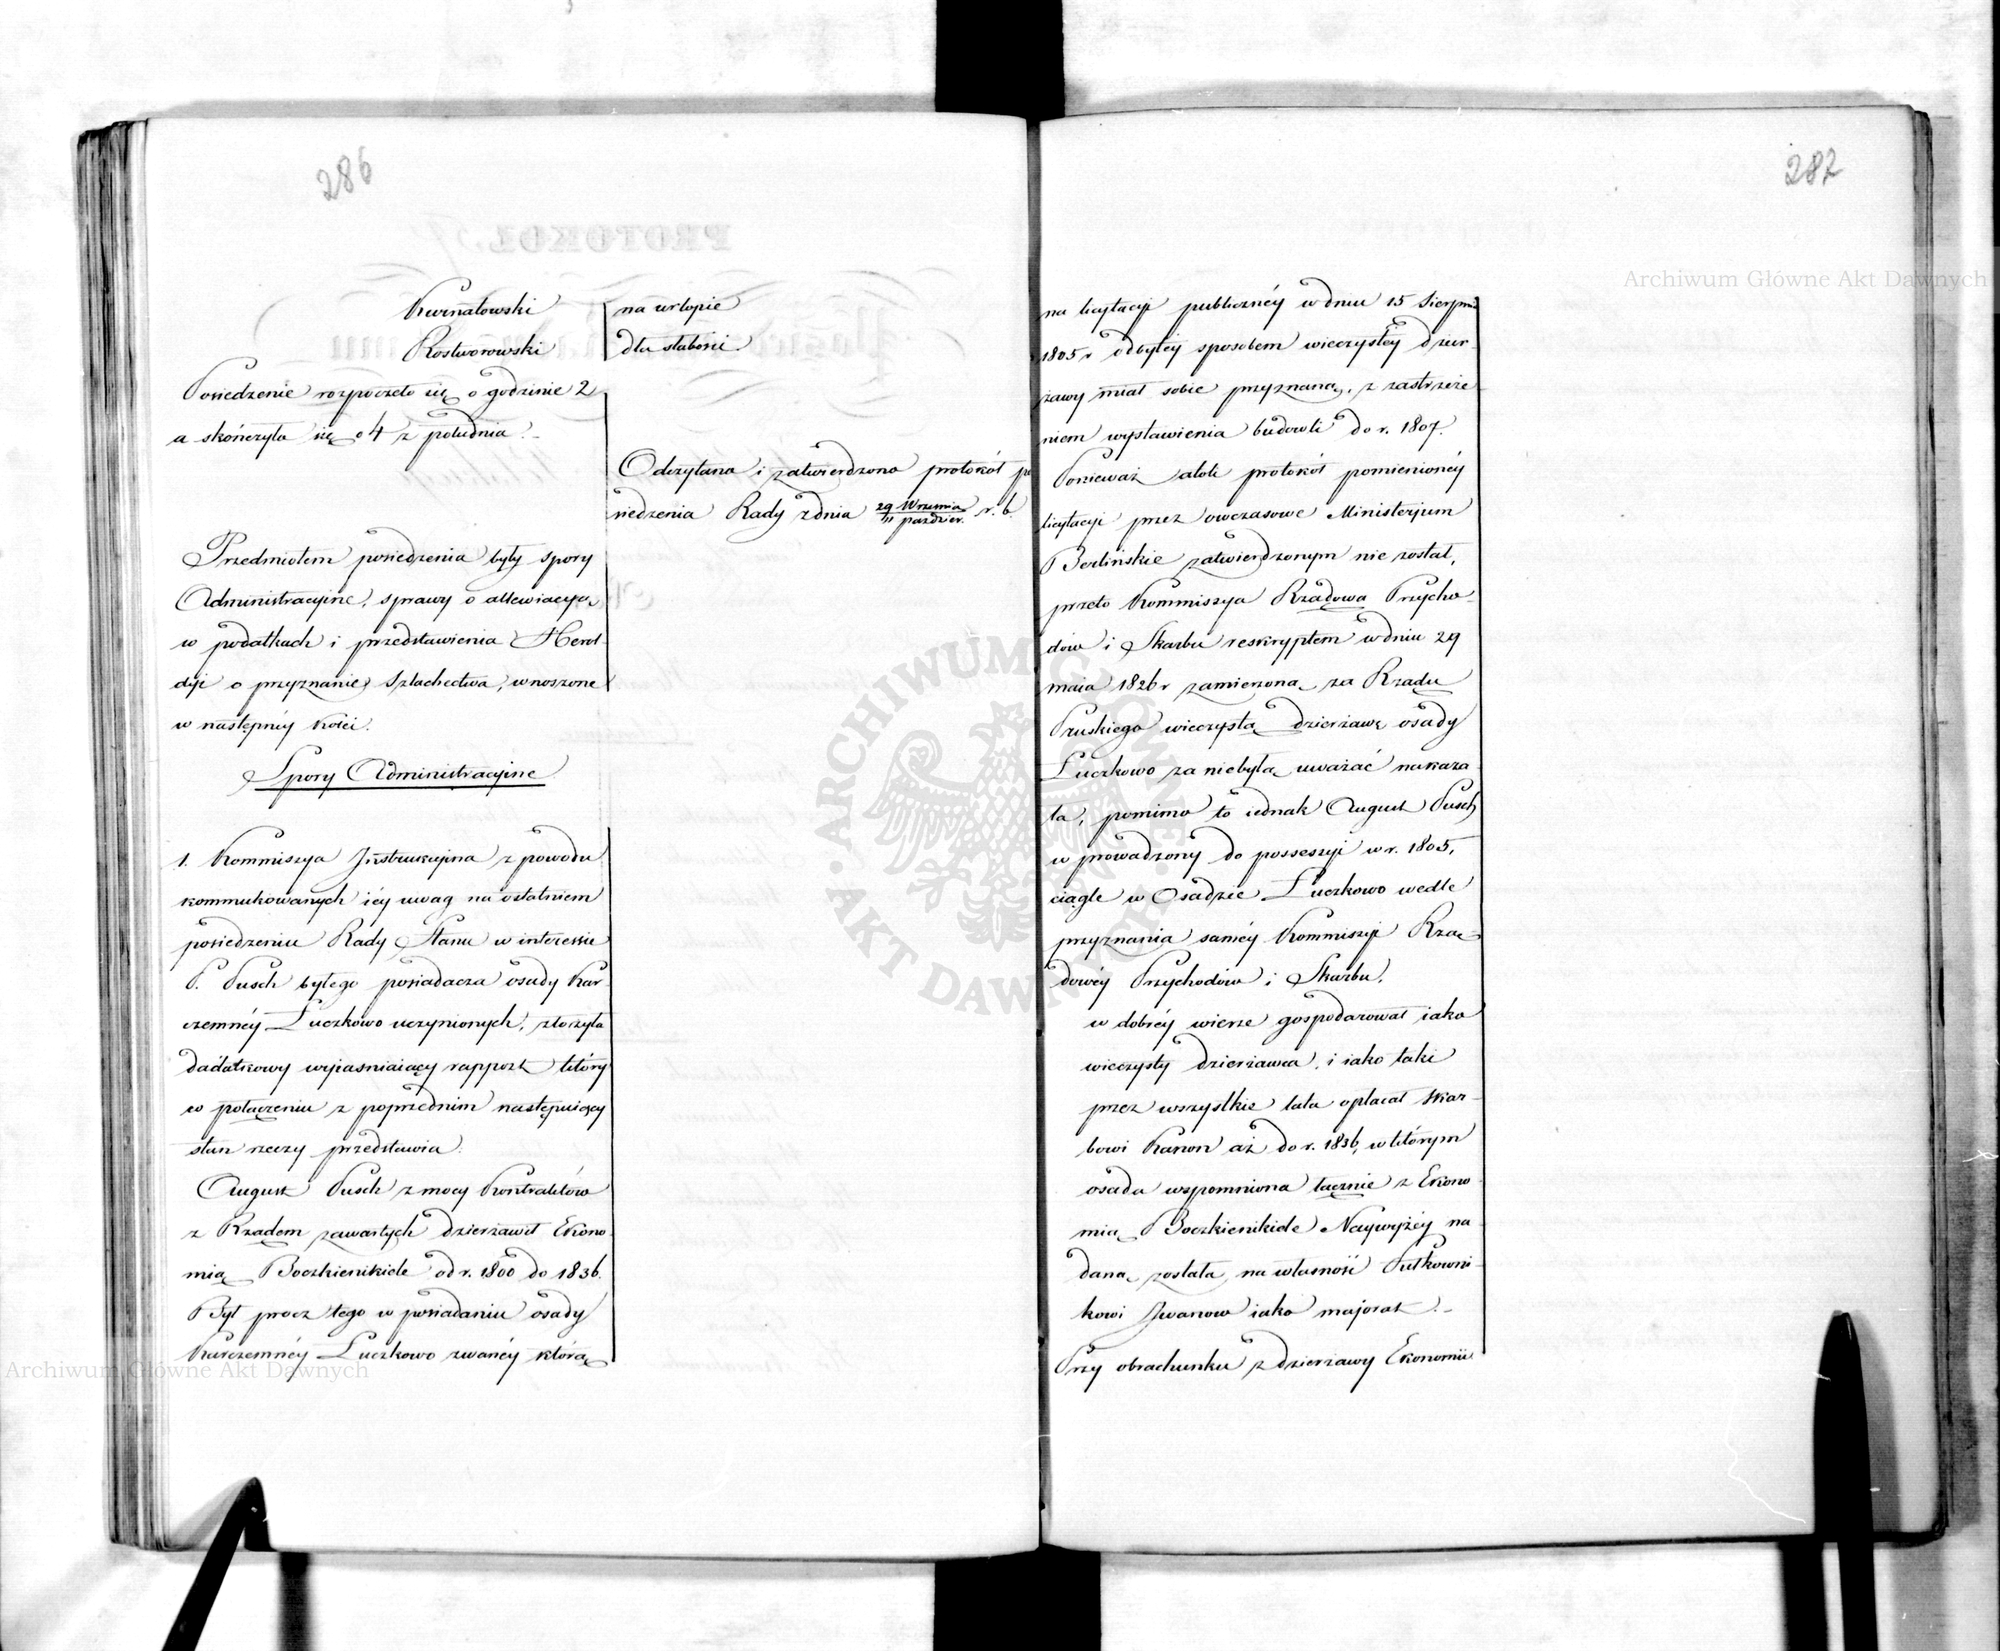 286
Kurnatowski na urlopie
Rostworowski dla słabości
Posiedzenie rozpoczęło się o godzinie 2
a skończyła się o 4 z południa.
Odczytano i zatwierdzono protokół po
siedzenia Rady z dnia 29 Września / 11 paździer. r. b.
Przedmiotem posiedzenia były spory
Administracyine, sprawy o allewiacye
w podatkach i przedstawienia Herol-
dyi o przyznanie Szlachectwa, wnoszone
w następnéy kolei.
Spory Administracyine
1. Kommissya Instrukcyina z powodu
kommunikowanych iéy uwag na ostatniem
posiedzeniu Rady Stanu w interessie
P. Pusch byłego posiadacza osady Kar-
czemnéy Luczkowo uczynionych, złożyła
dodatkowy wyiasniaiący rapport który
w połączeniu z poprzednim następuiący
stan rzeczy przedstawia.
August Pusch z mocy Kontraktów
z Rządem zawartych dzierżawił Ekono-
mią Boczkienikiele od r. 1800 do 1836.
Był procz tego w posiadaniu osady
Karczemnéy Luczkowo zwanéy którą
282
na licytacyi publicznéy w dniu 15 Sierpnia
1805 r odbytéy sposobem wieczystéy dzier-
żawy miał sobie przyznaną, z zastrzeże
niem wystawienia budowli do r. 1807.
Ponieważ atoli protokół pomienionéy
licytacyi przez owczasowe Ministerjum
Berlińskie zatwierdzonym nie został,
przeto Kommissya Rządowa Przycho-
dów i Skarbu reskryptem w dniu 29
maia 1826 r zamierzoną za Rządu
Pruskiego wieczystą dzierżawę osady
Luczkowo za niebyłą uważać nakaza-
ła, pomimo to iednak August Pusch
wprowadzony do possessyi w r. 1805,
ciągle w Osadzie Luczkowo wedle
przyznania saméy Kommissyi Rzą-
dowéy Przychodów i Skarbu,
w dobréy wierze gospodarował iako
wieczysty dzierżawca, i iako taki
przez wszystkie lata opłacał Skar-
bowi Kanon aż do r. 1836, w którym
osada wspomniona łącznie z Ekono-
mią Boczkienikiele Naywyżéy na-
daną została na własność Pułkowni-
kowi Iwanow iako majorat.
Przy obrachunku z dzierżawy Ekonomii
Archiwum Główne Akt Dawnych
Archiwum Główne Akt Dawnych
ARCHIWUM GŁÓWNE AKT DAWNYCH
PROTOKÓŁ